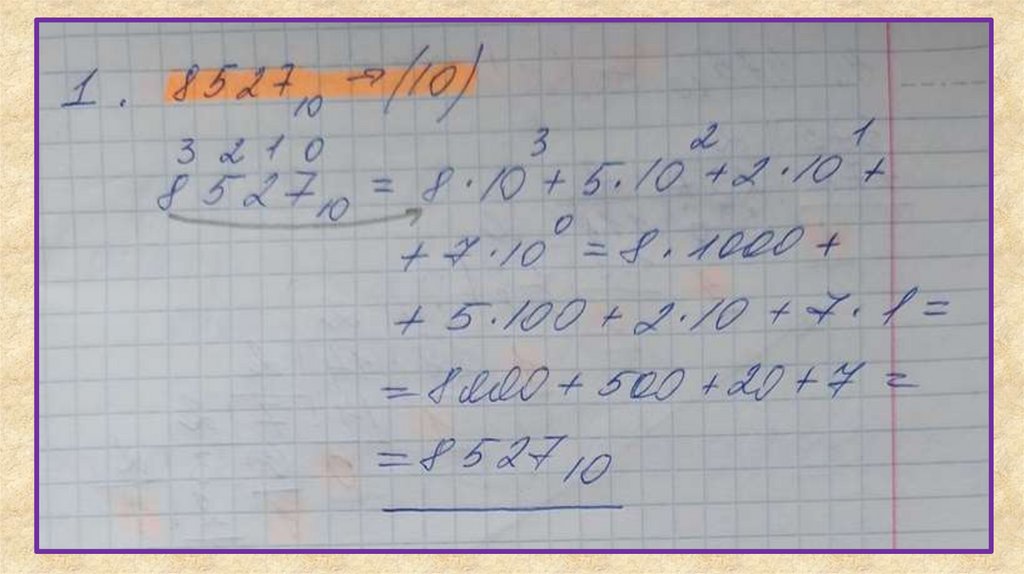 1. 8527₁₀ → (10)
3 2 1 0
8527₁₀ = 8·10³ + 5·10² + 2·10¹ +
+ 7·10⁰ = 8·1000 +
+ 5·100 + 2·10 + 7·1 =
= 8000 + 500 + 20 + 7 =
= 8527₁₀